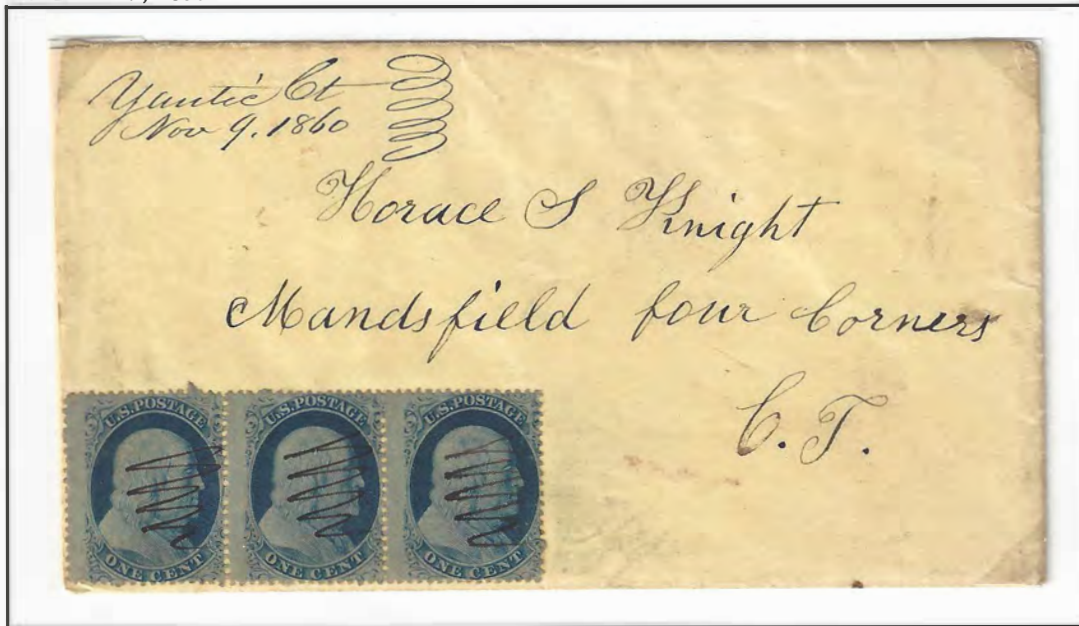 Yantic Ct
Nov 9. 1860
Horace S Knight
Mandsfield four Corners
C.T.
U.S. POSTAGE U.S. POSTAGE U.S. POSTAGE
ONE CENT ONE CENT ONE CENT